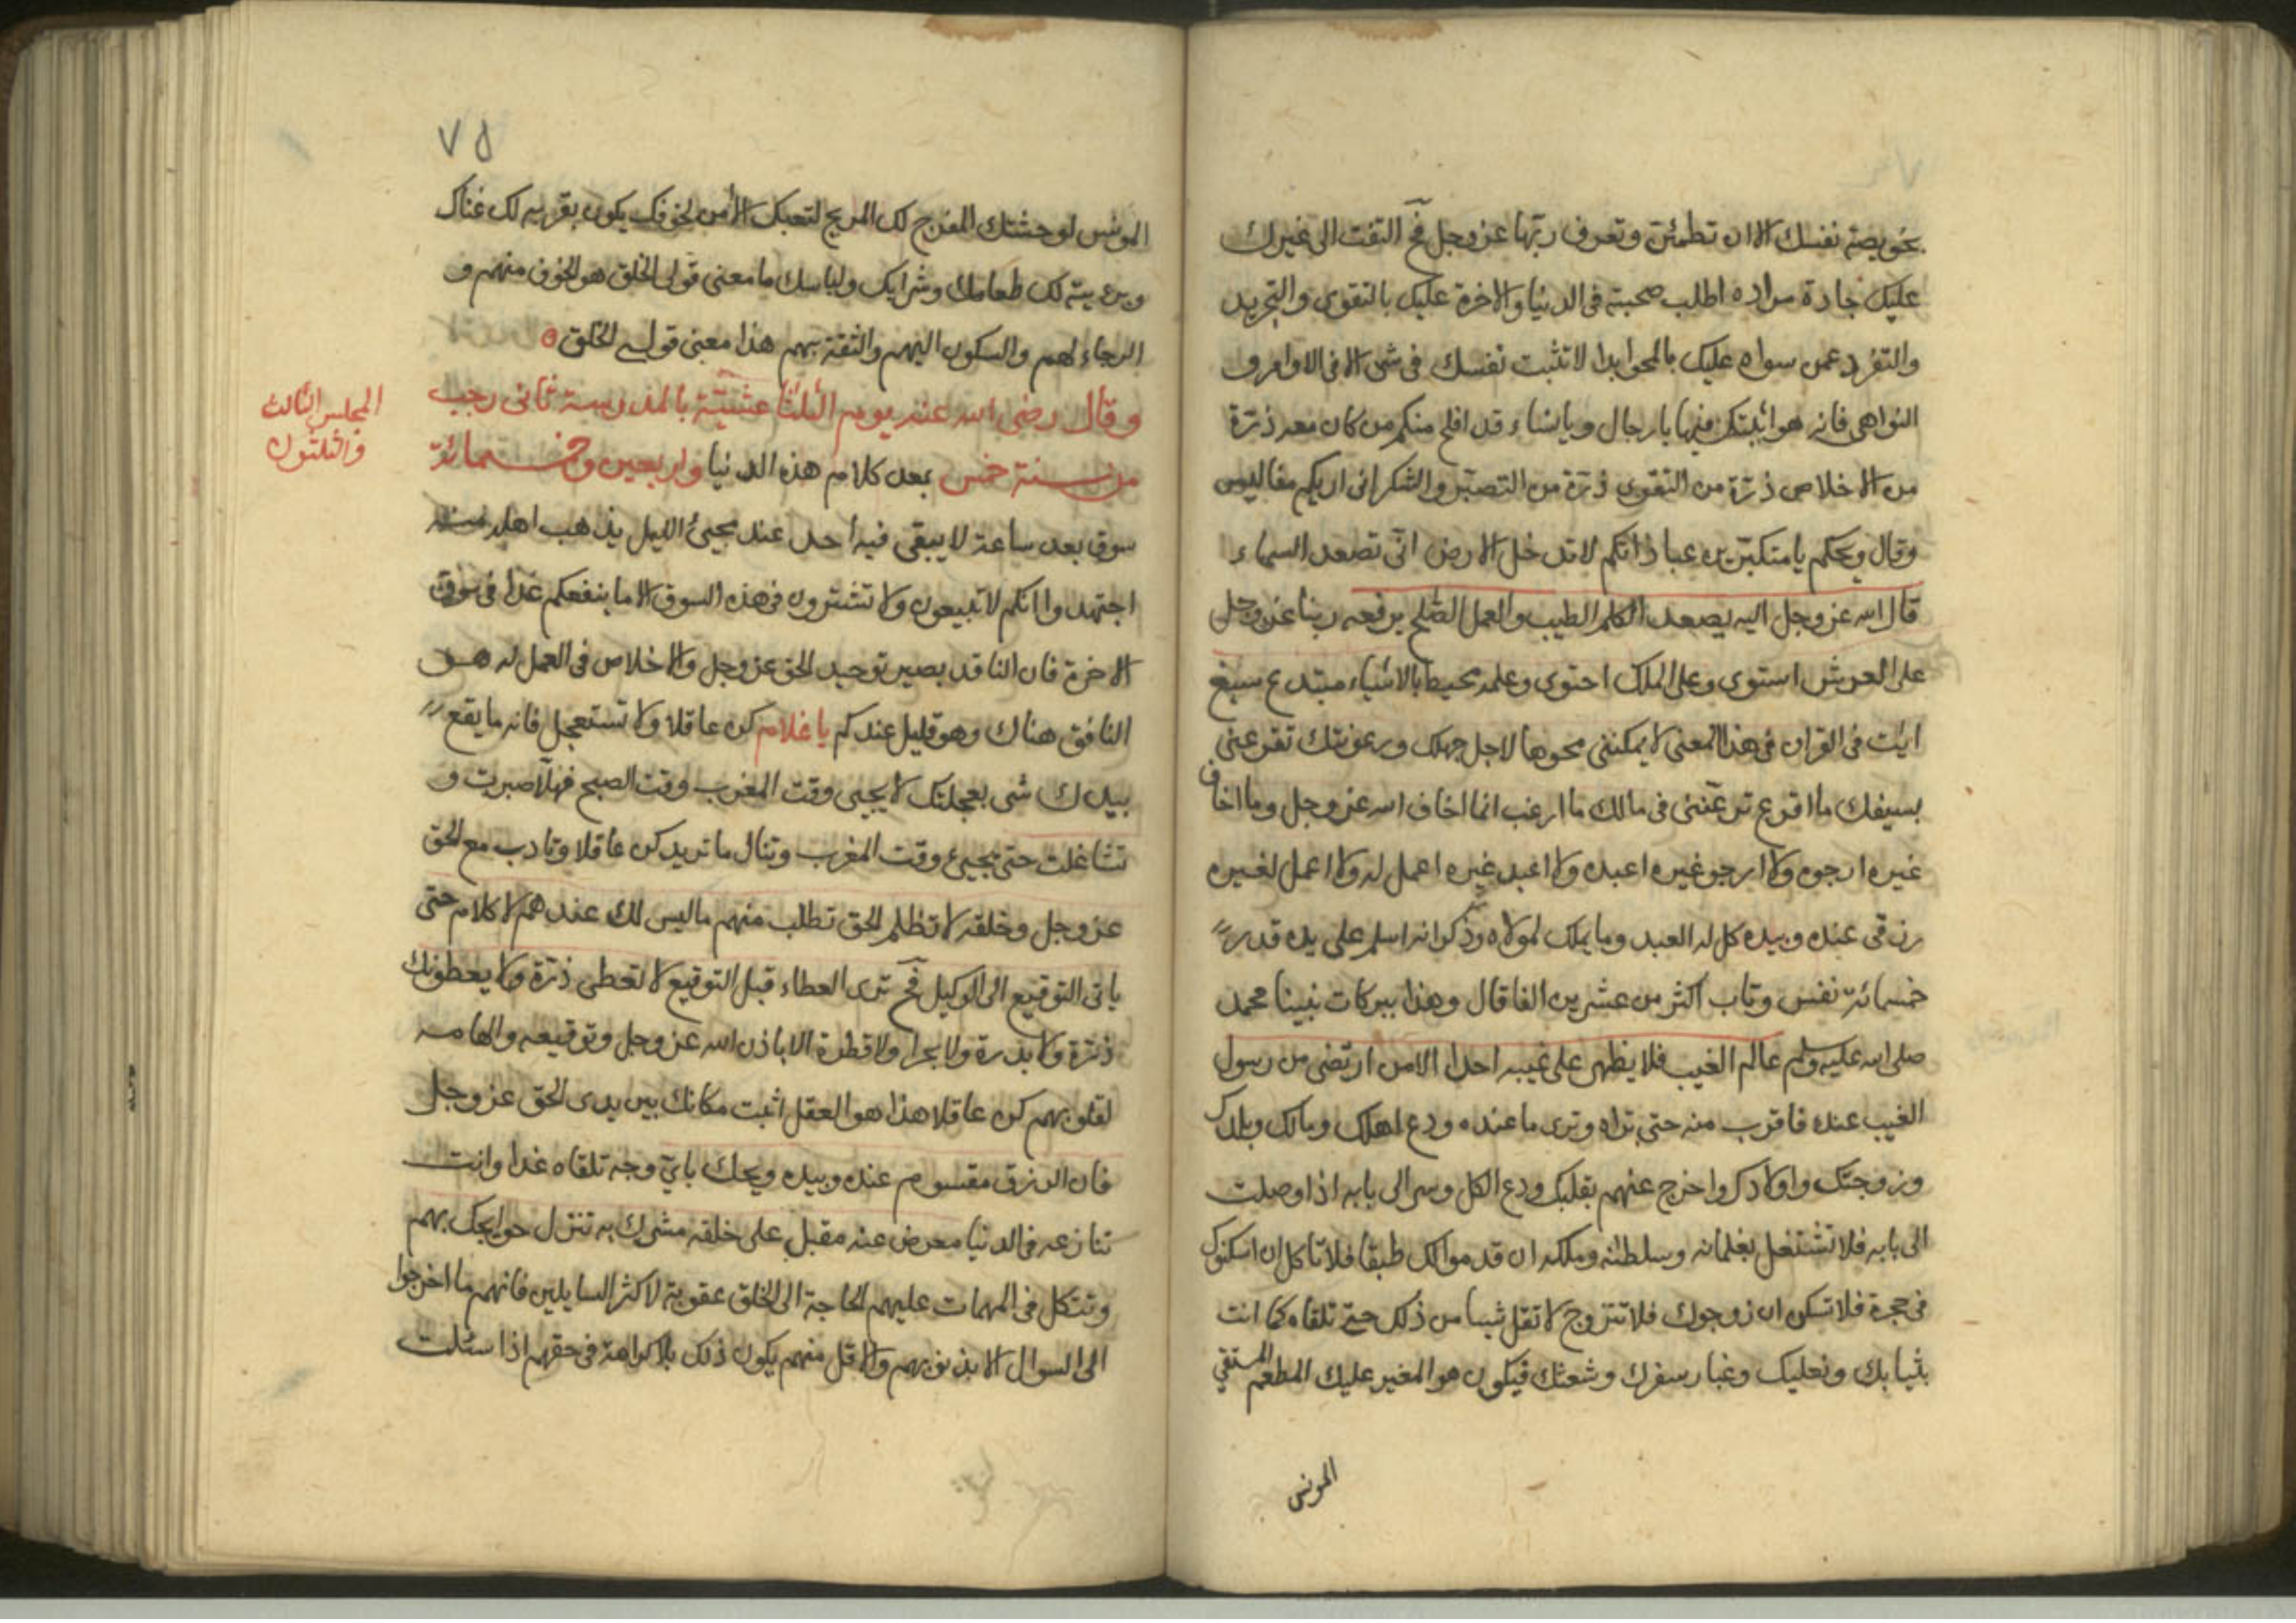 بخويصة نفسك الا ان تطمئن وتعرف ربها عز وجل فح التفت الى غيرك
عليك جادة مراده اطلب صحبته فى الدنيا والاخرة عليك بالتقوى والتجريد
والتفرد عمن سواه عليك بالمحو ابدا لا تثبت نفسك فى شى الا فى الاوامر و
النواهى فانه هو اثبتك فيها يا رجال ويا نساء قد افلح منكم من كان معه ذرة
من الاخلاص ذرة من التقوى ذرة من التصبر والشكر انى اريكم مفاليس
وقال ويحكم يا متكبرين عباداتكم لا تدخل الارض انى تصعد السماء
قال الله عز وجل اليه يصعد الكلم الطيب والعمل الصلح يرفعه ربنا عز وجل
على العرش استوى وعلى الملك احتوى وعلمه محيط بالاشياء مبتدع سبغ
ايات فى القران فى هذا المعنى لا يمكننى محوها لاجل جهلك ورعونتك تفزعنى
بسيفك ما افزع ترغبنى فى مالك ما ارغب انما اخاف الله عز وجل وما اخاف
غيره ارجوه ولا ارجو غيره اعبده ولا اعبد غيره اعمل له ولا اعمل لغيره
رزقى عنده وبيده كل له العبد وما يملك لمولاه وذكر انه اسلم على يده قدر
خمسمائة نفس وتاب اكثر من عشرين الفا قال وهذا ببركات نبينا محمد
صلى الله عليه وسلم عالم الغيب فلا يظهر على غيبه احدا الا من ارتضى من رسول
الغيب عنده فاقرب منه حتى تراه وترى ما عنده ودع اهلك ومالك وبلدك
وزوجتك واولادك واخرج عنهم بقلبك ودع الكل وسر الى بابه اذا وصلت
الى بابه فلا تشتغل بغلمانه وسلطنه وملكه ان قدموا لك طبقا فلا تاكل ان اسكنوك
فى حجرة فلا تسكن ان زوجوك فلا تتزوج لا تقل شيا من ذلك حتى تلقاه كما انت
بثيابك ونعليك وغبار سفرك وشعثك فيكون هو المغير عليك المطعم المستقي
المونس
٧٥
المونس لوحشتك المفرج لك المريح لتعبك الامن لخوفك يكون بقربه لك غناك
وبرؤيته لك طعامك وشرابك ولباسك ما معنى قولى الخلق هو الخوف منهم و
الرجاء لهم والسكون اليهم والثقة بهم هذا معنى قولي الخلق
المجلس الثالث
والثلثون
وقال رضى الله عنه يوم الثلثا عشية بالمدرسة ثانى رجب
من سنة خمس واربعين وخمسمائة بعد كلام هذه الدنيا
سوق بعد ساعة لا يبقى فيه أحد عند مجيئ الليل يذهب اهله منه
اجتهدوا انكم لا تبيعون ولا تشترون فى هذه السوق الا ما ينفعكم غدا فى سوق
الاخرة فان الناقد بصير توحيد الحق عز وجل والاخلاص فى العمل له هو
النافق هناك وهو قليل عندكم يا غلام كن عاقلا ولا تستعجل فانه ما يقع
بيدك شى بعجلتك لا يجيى وقت المغرب وقت الصبح فهلا صبرت و
تشاغلت حتى يجيئ وقت المغرب وتنال ما تريد كن عاقلا وتادب مع الحق
عز وجل وخلقه لا تظلم الحق تطلب منهم ما ليس لك عندهم لا كلام حتى
ياتى التوقيع الى الوكيل فح ترى العطاء قبل التوقيع لا تعطى ذرة ولا يعطونك
ذرة ولا بدرة ولا بحرا ولا قطرة الا باذن الله عز وجل وتوقيعه والهامه
لقلوبهم كن عاقلا هذا هو العقل اثبت مكانك بين يدى الحق عز وجل
فان الرزق مقسوم عنده وبيده ويحك باي وجه تلقاه غدا وانت
تنازعه فى الدنيا معرض عنه مقبل على خلقه مشرك به تنزل حوايجك بهم
وتتكل فى المهمات عليهم الحاجة الى الخلق عقوبة لاكثر السايلين فانهم ما اخرجوا
الى السوال الا بذنوبهم والاقل منهم يكون ذلك بلا كراهة فى حقهم اذا سئلت